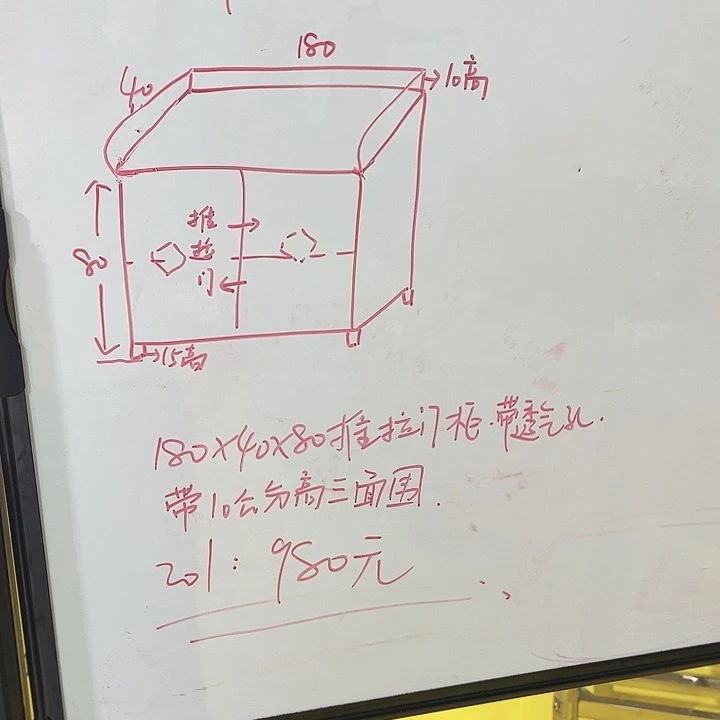 180
40
10高
推
拉
门
80
15高
180×40×80推拉门柜.带透气孔.
带10公分高三面围.
201：980元